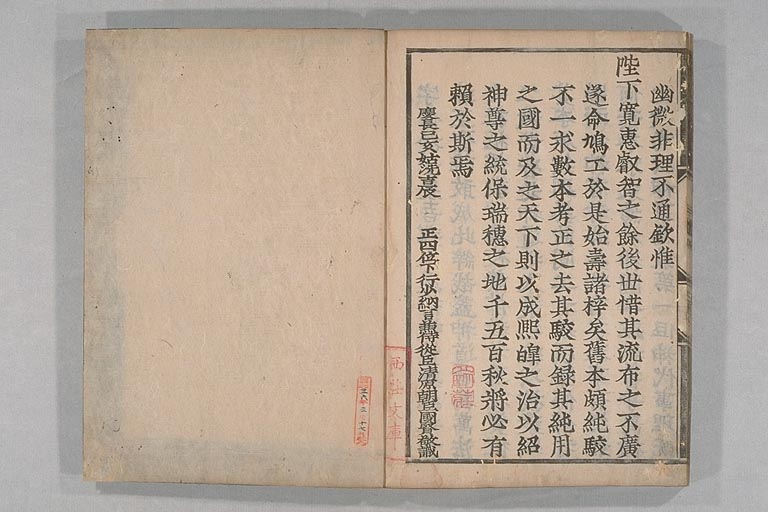 幽微非理不通欽惟
陛下寬惠叡智之餘後世惜其流布之不廣
遂命鳩工於是始壽諸梓矣舊本頗純駁
不一求數本考正之去其駁而錄其純用
之國而及之天下則以成熈皥之治以紹
神尊之統保瑞穗之地千五百秋將必有
賴於斯焉
慶長己亥姑洗吉辰　正四位下行少納言兼侍從臣清原朝臣國賢敬識
文庫